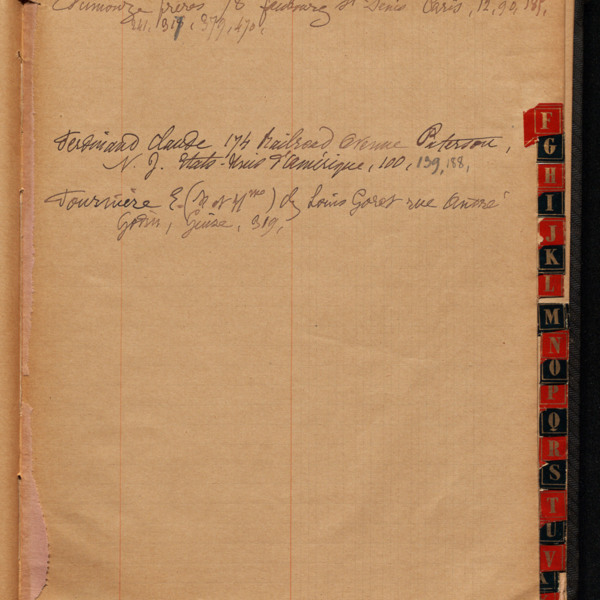 Dumonge frères 78 faubourg St Denis Paris, 12, 90, 185,
241, 317, 379, 470,
Ferdinand Claude 174 Railroad Avenue Paterson,
N. J. Etats-Unis d'Amérique, 100, 139, 188,
Fournière E. (M et Mme) chez Louis Goret rue André
Godin, Guise, 319,
F
G
H
I
J
K
L
M
N
O
P
Q
R
S
T
U
V